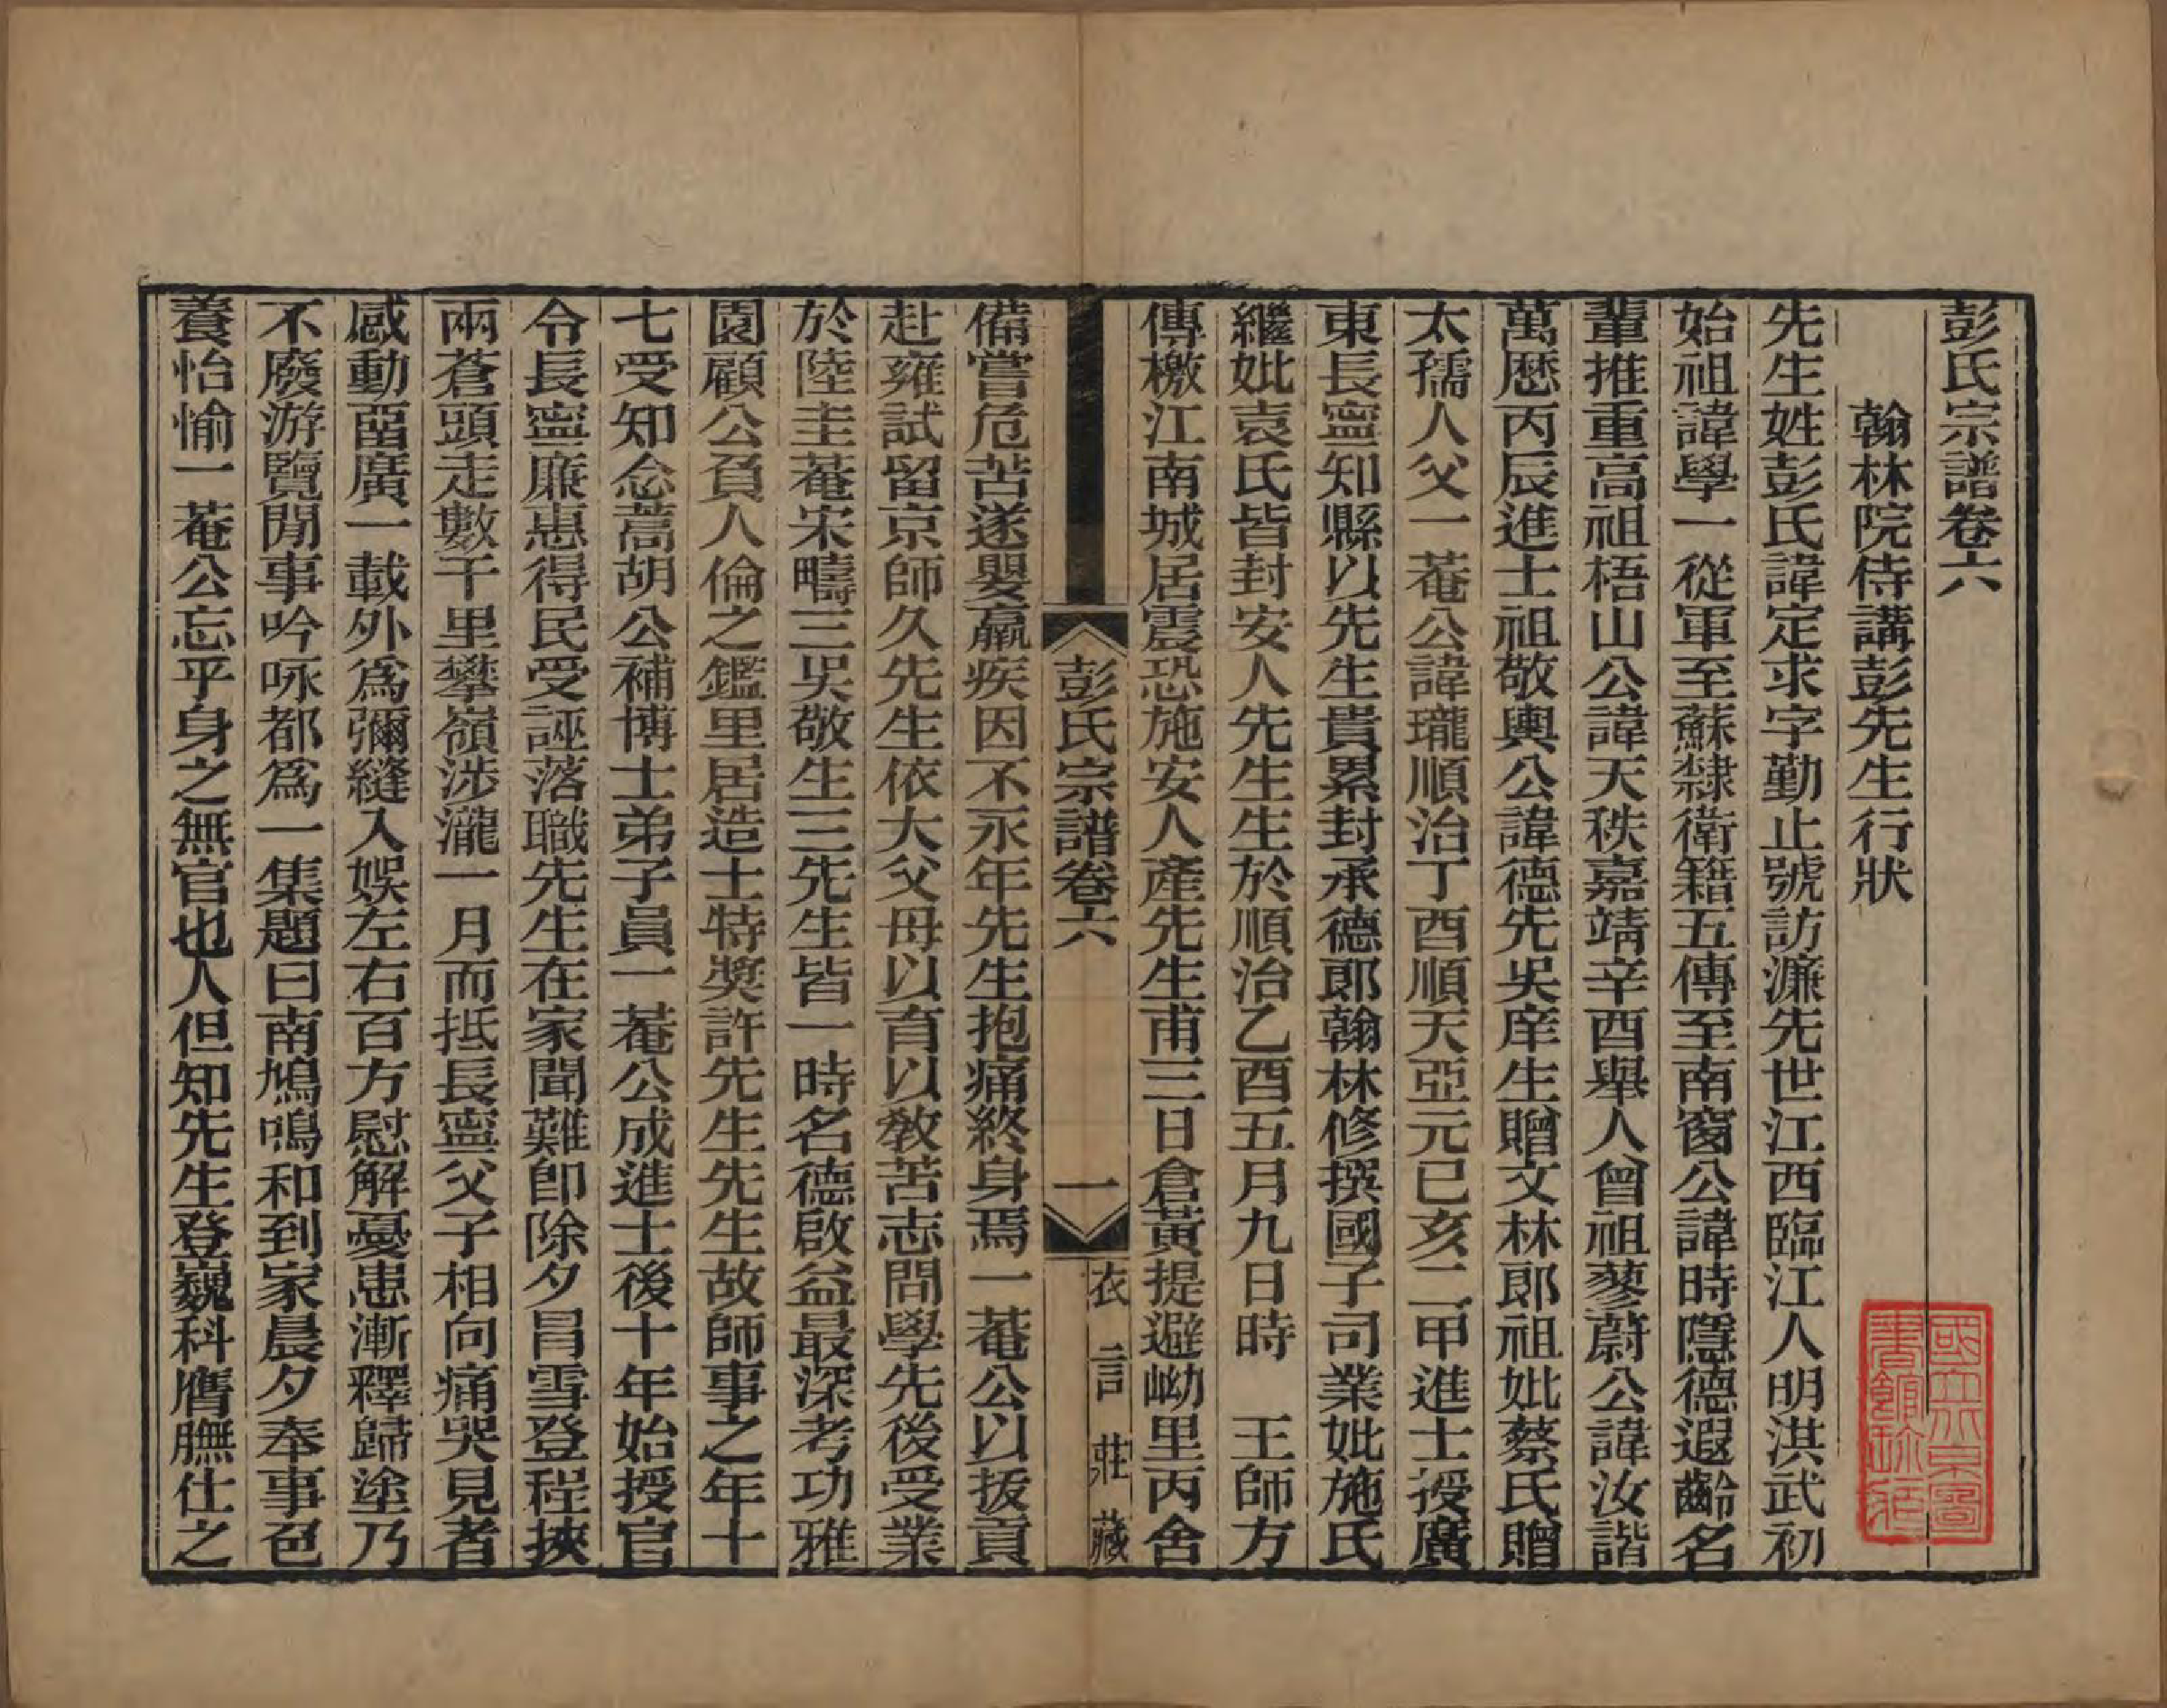 彭氏宗譜卷六
翰林院侍講彭先生行狀
先生姓彭氏諱定求字勤止號訪濂先世江西臨江人明洪武初
始祖諱學一從軍至蘇隸衛籍五傳至南窗公諱時隱德遐齡名
輩推重高祖梧山公諱天秩嘉靖辛酉舉人曾祖蓼蔚公諱汝諧
萬歷丙辰進士祖敬輿公諱德先吳庠生贈文林郎祖妣蔡氏贈
太孺人父一菴公諱瓏順治丁酉順天亞元已亥二甲進士授廣
東長寧知縣以先生貴累封承德郎翰林修撰國子司業妣施氏
繼妣袁氏皆封安人先生生於順治乙酉五月九日時　王師方
傳檄江南城居震恐施安人產先生甫三日倉黃提避㘭里丙舍
彭氏宗譜卷六
一
衣言莊藏
備嘗危苦遂嬰羸疾因不永年先生抱痛終身焉一菴公以拔貢
赴雍試留京師久先生依大父母以育以敎苦志問學先後受業
於陸圭菴宋疇三吳敬生三先生皆一時名德啟益最深考功雅
園顧公負人倫之鑑里居造士特奬許先生先生故師事之年十
七受知念蒿胡公補博士弟子員一菴公成進士後十年始授官
令長寧廉惠得民受誣落職先生在家聞難卽除夕冒雪登程挾
兩蒼頭走數千里攀嶺涉瀧一月而抵長寧父子相向痛哭見者
感動畱廣一載外爲彌縫入娛左右百方慰解憂患漸釋歸塗乃
不廢游覽閒事吟咏都爲一集題曰南鳩鳴和到家晨夕奉事色
養怡愉一菴公忘乎身之無官也人但知先生登巍科膺膴仕之
國立北京圖書館珍藏